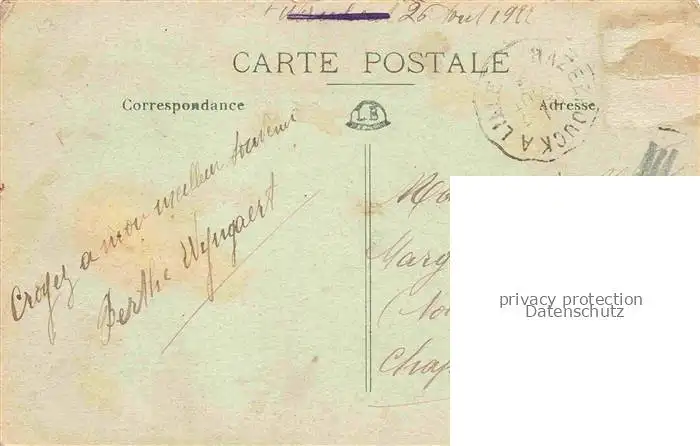 26 Aout 1922
CARTE POSTALE
Correspondance
Adresse,
LB
HAZEBROUCK A LIL
Croyez a mon meilleur souvenir
Berthe Wyngaert
Marg
Chap
privacy protection
Datenschutz